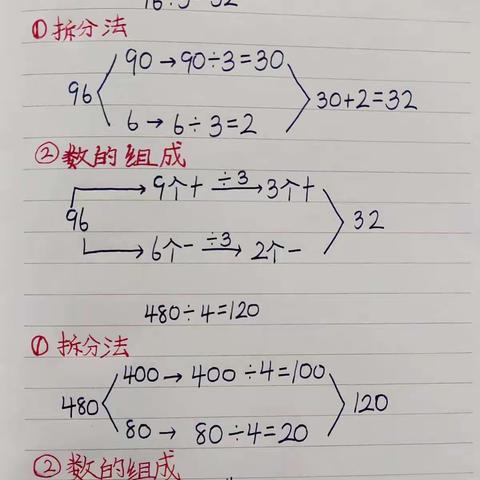 ①拆分法
90→90÷3=30
96
30+2=32
6→6÷3=2
②数的组成
9个十 ÷3→ 3个十
96
32
6个一 ÷3→ 2个一
480÷4=120
①拆分法
400→400÷4=100
480
120
80→80÷4=20
②数的组成